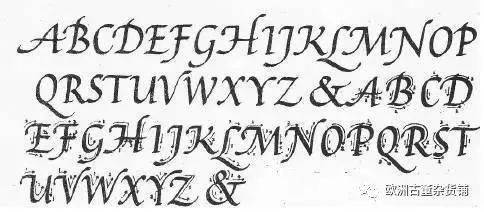 ABCDEFGHIJKLMNOP
QRSTUVWXYZ &ABCD
EFGHIJKLMNOPQRST
UVWXYZ &
欧洲古董杂货铺